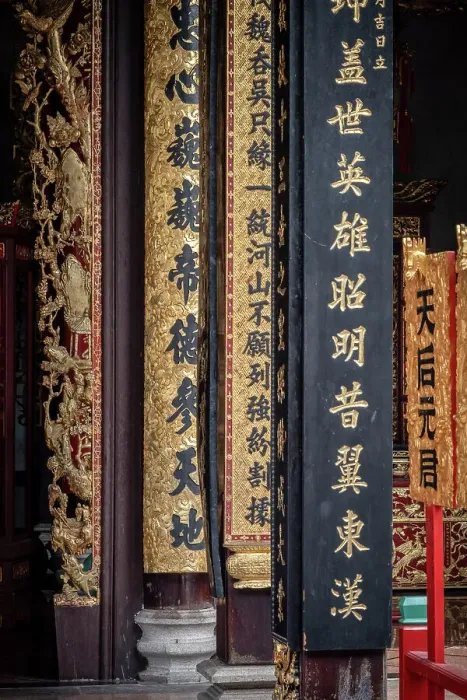 天后元君
吉日立
蓋世英雄昭明昔翼東漢
魏吞吳只緣一統河山不願列強紛割據
忠心巍巍帝德參天地